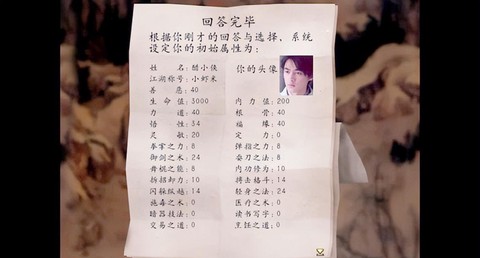 回答完毕
根据你刚才的回答与选择，系统
设定你的初始属性为：
姓名：醋小侠 你的头像
江湖称号：小虾米
善恶：40
生命值：3000 内力值：200
力道：40 根骨：40
悟性：34 福缘：40
灵敏：20 定力：0
拳掌之力：8 弹指之力：8
御剑之术：24 耍刀之法：8
弄棍之能：8 内功修为：10
拆招卸力：10 搏击格斗：14
闪躲纵越：14 轻身之法：24
施毒之术：0 医疗之术：0
暗器技法：0 读书写字：0
交易之道：0 烹饪之道：0